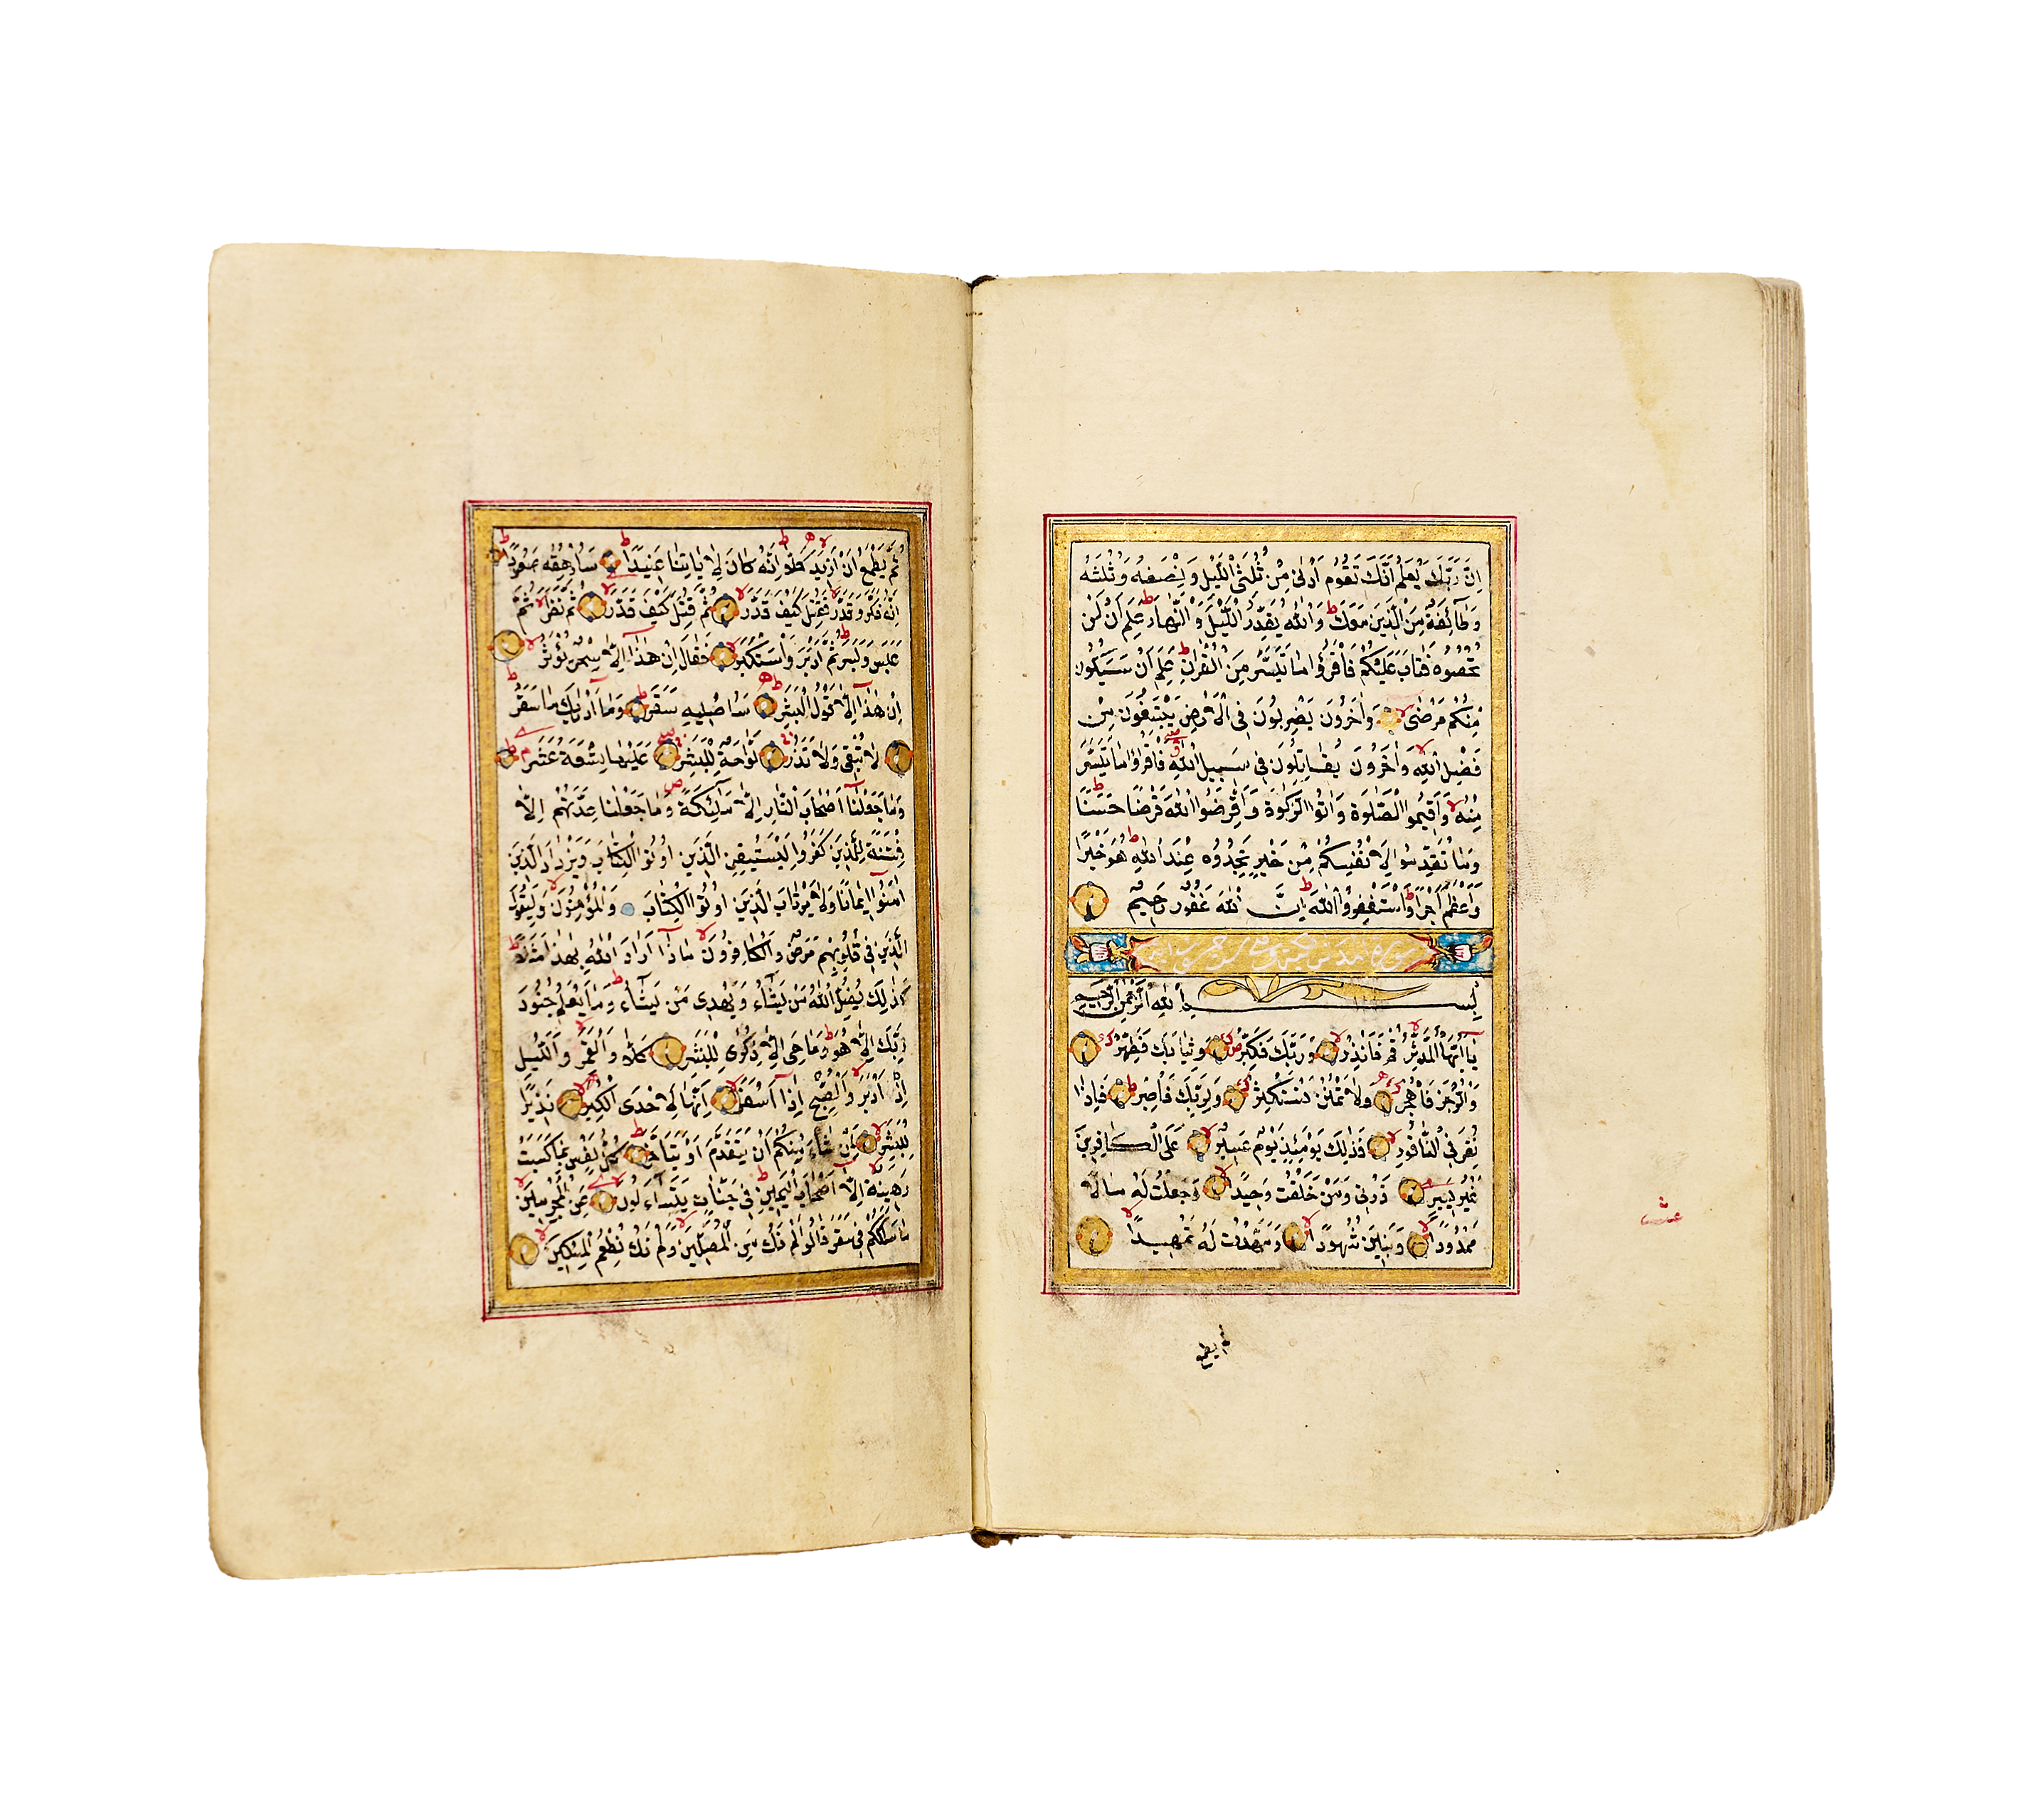 اِنَّ رَبَّكَ يَعْلَمُ اَنَّكَ تَقُومُ اَدْنٰى مِنْ ثُلُثَىِ الَّيْلِ وَنِصْفَهُ وَثُلُثَهُ
وَطَآئِفَةٌ مِنَ الَّذِينَ مَعَكَ وَاللّٰهُ يُقَدِّرُ الَّيْلَ وَالنَّهَارَ عَلِمَ اَنْ لَنْ
تُحْصُوهُ فَتَابَ عَلَيْكُمْ فَاقْرَؤُا مَا تَيَسَّرَ مِنَ الْقُرْاٰنِ عَلِمَ اَنْ سَيَكُونُ
مِنْكُمْ مَرْضٰى وَاٰخَرُونَ يَضْرِبُونَ فِى الْاَرْضِ يَبْتَغُونَ مِنْ
فَضْلِ اللّٰهِ وَاٰخَرُونَ يُقَاتِلُونَ فِى سَبِيلِ اللّٰهِ فَاقْرَؤُا مَا تَيَسَّرَ
مِنْهُ وَاَقِيمُوا الصَّلٰوةَ وَاٰتُوا الزَّكٰوةَ وَاَقْرِضُوا اللّٰهَ قَرْضًا حَسَنًا
وَمَا تُقَدِّمُوا لِاَنْفُسِكُمْ مِنْ خَيْرٍ تَجِدُوهُ عِنْدَ اللّٰهِ هُوَ خَيْرًا
وَاَعْظَمَ اَجْرًا وَاسْتَغْفِرُوا اللّٰهَ اِنَّ اللّٰهَ غَفُورٌ رَحِيمٌ
بِسْمِ اللّٰهِ الرَّحْمٰنِ الرَّحِيمِ
يَآ اَيُّهَا الْمُدَّثِّرُ قُمْ فَاَنْذِرْ وَرَبَّكَ فَكَبِّرْ وَثِيَابَكَ فَطَهِّرْ
وَالرُّجْزَ فَاهْجُرْ وَلَا تَمْنُنْ تَسْتَكْثِرُ وَلِرَبِّكَ فَاصْبِرْ فَاِذَا
نُقِرَ فِى النَّاقُورِ فَذٰلِكَ يَوْمَئِذٍ يَوْمٌ عَسِيرٌ عَلَى الْكَافِرِينَ
غَيْرُ يَسِيرٍ ذَرْنِى وَمَنْ خَلَقْتُ وَحِيدًا وَجَعَلْتُ لَهُ مَالًا
مَمْدُودًا وَبَنِينَ شُهُودًا وَمَهَّدْتُ لَهُ تَمْهِيدًا
ثم يطمع
عشر
ثُمَّ يَطْمَعُ اَنْ اَزِيدَ كَلَّا اِنَّهُ كَانَ لِاٰيَاتِنَا عَنِيدًا سَاُرْهِقُهُ صَعُودًا
اِنَّهُ فَكَّرَ وَقَدَّرَ فَقُتِلَ كَيْفَ قَدَّرَ ثُمَّ قُتِلَ كَيْفَ قَدَّرَ ثُمَّ نَظَرَ ثُمَّ
عَبَسَ وَبَسَرَ ثُمَّ اَدْبَرَ وَاسْتَكْبَرَ فَقَالَ اِنْ هٰذَآ اِلَّا سِحْرٌ يُؤْثَرُ
اِنْ هٰذَآ اِلَّا قَوْلُ الْبَشَرِ سَاُصْلِيهِ سَقَرَ وَمَآ اَدْرٰيكَ مَا سَقَرُ
لَا تُبْقِى وَلَا تَذَرُ لَوَّاحَةٌ لِلْبَشَرِ عَلَيْهَا تِسْعَةَ عَشَرَ
وَمَا جَعَلْنَآ اَصْحَابَ النَّارِ اِلَّا مَلٰٓئِكَةً وَمَا جَعَلْنَا عِدَّتَهُمْ اِلَّا
فِتْنَةً لِلَّذِينَ كَفَرُوا لِيَسْتَيْقِنَ الَّذِينَ اُوتُوا الْكِتَابَ وَيَزْدَادَ الَّذِينَ
اٰمَنُوٓا اِيمَانًا وَلَا يَرْتَابَ الَّذِينَ اُوتُوا الْكِتَابَ وَالْمُؤْمِنُونَ وَلِيَقُولَ
الَّذِينَ فِى قُلُوبِهِمْ مَرَضٌ وَالْكَافِرُونَ مَاذَآ اَرَادَ اللّٰهُ بِهٰذَا مَثَلًا
كَذٰلِكَ يُضِلُّ اللّٰهُ مَنْ يَشَآءُ وَيَهْدِى مَنْ يَشَآءُ وَمَا يَعْلَمُ جُنُودَ
رَبِّكَ اِلَّا هُوَ وَمَا هِىَ اِلَّا ذِكْرٰى لِلْبَشَرِ كَلَّا وَالْقَمَرِ وَالَّيْلِ
اِذْ اَدْبَرَ وَالصُّبْحِ اِذَآ اَسْفَرَ اِنَّهَا لَاِحْدَى الْكُبَرِ نَذِيرًا
لِلْبَشَرِ لِمَنْ شَآءَ مِنْكُمْ اَنْ يَتَقَدَّمَ اَوْ يَتَاَخَّرَ كُلُّ نَفْسٍ بِمَا كَسَبَتْ
رَهِينَةٌ اِلَّآ اَصْحَابَ الْيَمِينِ فِى جَنَّاتٍ يَتَسَآءَلُونَ عَنِ الْمُجْرِمِينَ
مَا سَلَكَكُمْ فِى سَقَرَ قَالُوا لَمْ نَكُ مِنَ الْمُصَلِّينَ وَلَمْ نَكُ نُطْعِمُ الْمِسْكِينَ